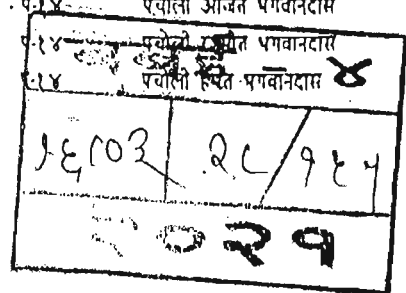 प-१४ पंचोली अजित भगवानदास
प-१४ पंचोली भगवानदास
प-१४ पंचोली हेमंत भगवानदास
- ४
१६८०३ २८/१६५
२०२१